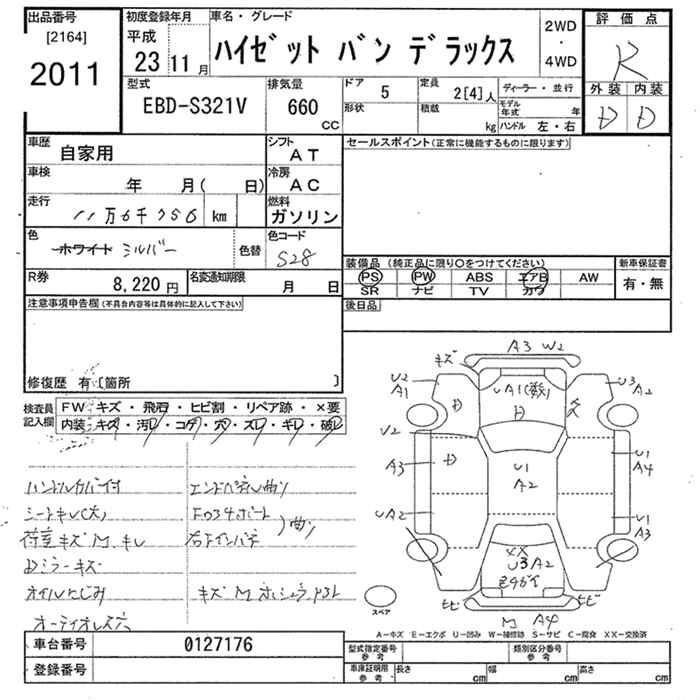 出品番号 初度登録年月 車名・グレード 2WD ・ 4WD 評価点
[2164] 平成
2011 23 11月 ハイゼット バン デラックス R
型式 排気量 ドア 定員 ディーラー・並行 外装 内装
EBD-S321V 660 CC 5 2[4]人 D D
形状 積載 kg モデル年式 年
ハンドル 左・右
車歴 自家用 シフト AT セールスポイント(正常に機能するものに限ります)
車検 年 月( 日) 冷房 AC
走行 11万6千756 km 燃料 ガソリン
色 ホワイト シルバー 色替 色コード S28
装備品(純正品に限り○をつけてください) 新車保証書
R券 8,220円 名変通知期限 月 日 PS PW ABS エアB AW 有・無
SR ナビ TV カワ
注意事項申告欄(不具合内容等は具体的に記入して下さい) 後日品
修復歴 有〔箇所 〕
検査員記入欄 FW キズ・飛石・ヒビ割・リペア跡・×要
内装 キズ・汚レ・コゲ・穴・ズレ・キレ・破レ
キズ A3 W2
U2 A1 UA1(数) U3 A2
D D
U2
A3 D U1 A2 U1 A4
UA2 U1 A3
XX U3 A2
ヒビ ヒビ
M A4
スペア
ハンドルカバー付 エンドパネル曲り
シートキレ(大)
荷室キズM、キレ 曲り
Dミラーキズ
オイルにじみ
オーディオレス穴
A-キズ E-エクボ U-凹み W-補修跡 S-サビ C-腐食 XX-交換済
車台番号 0127176 型式指定番号 参考 類別区分番号 参考
登録番号 車庫証明用 参考 長さ cm 幅 cm 高さ cm